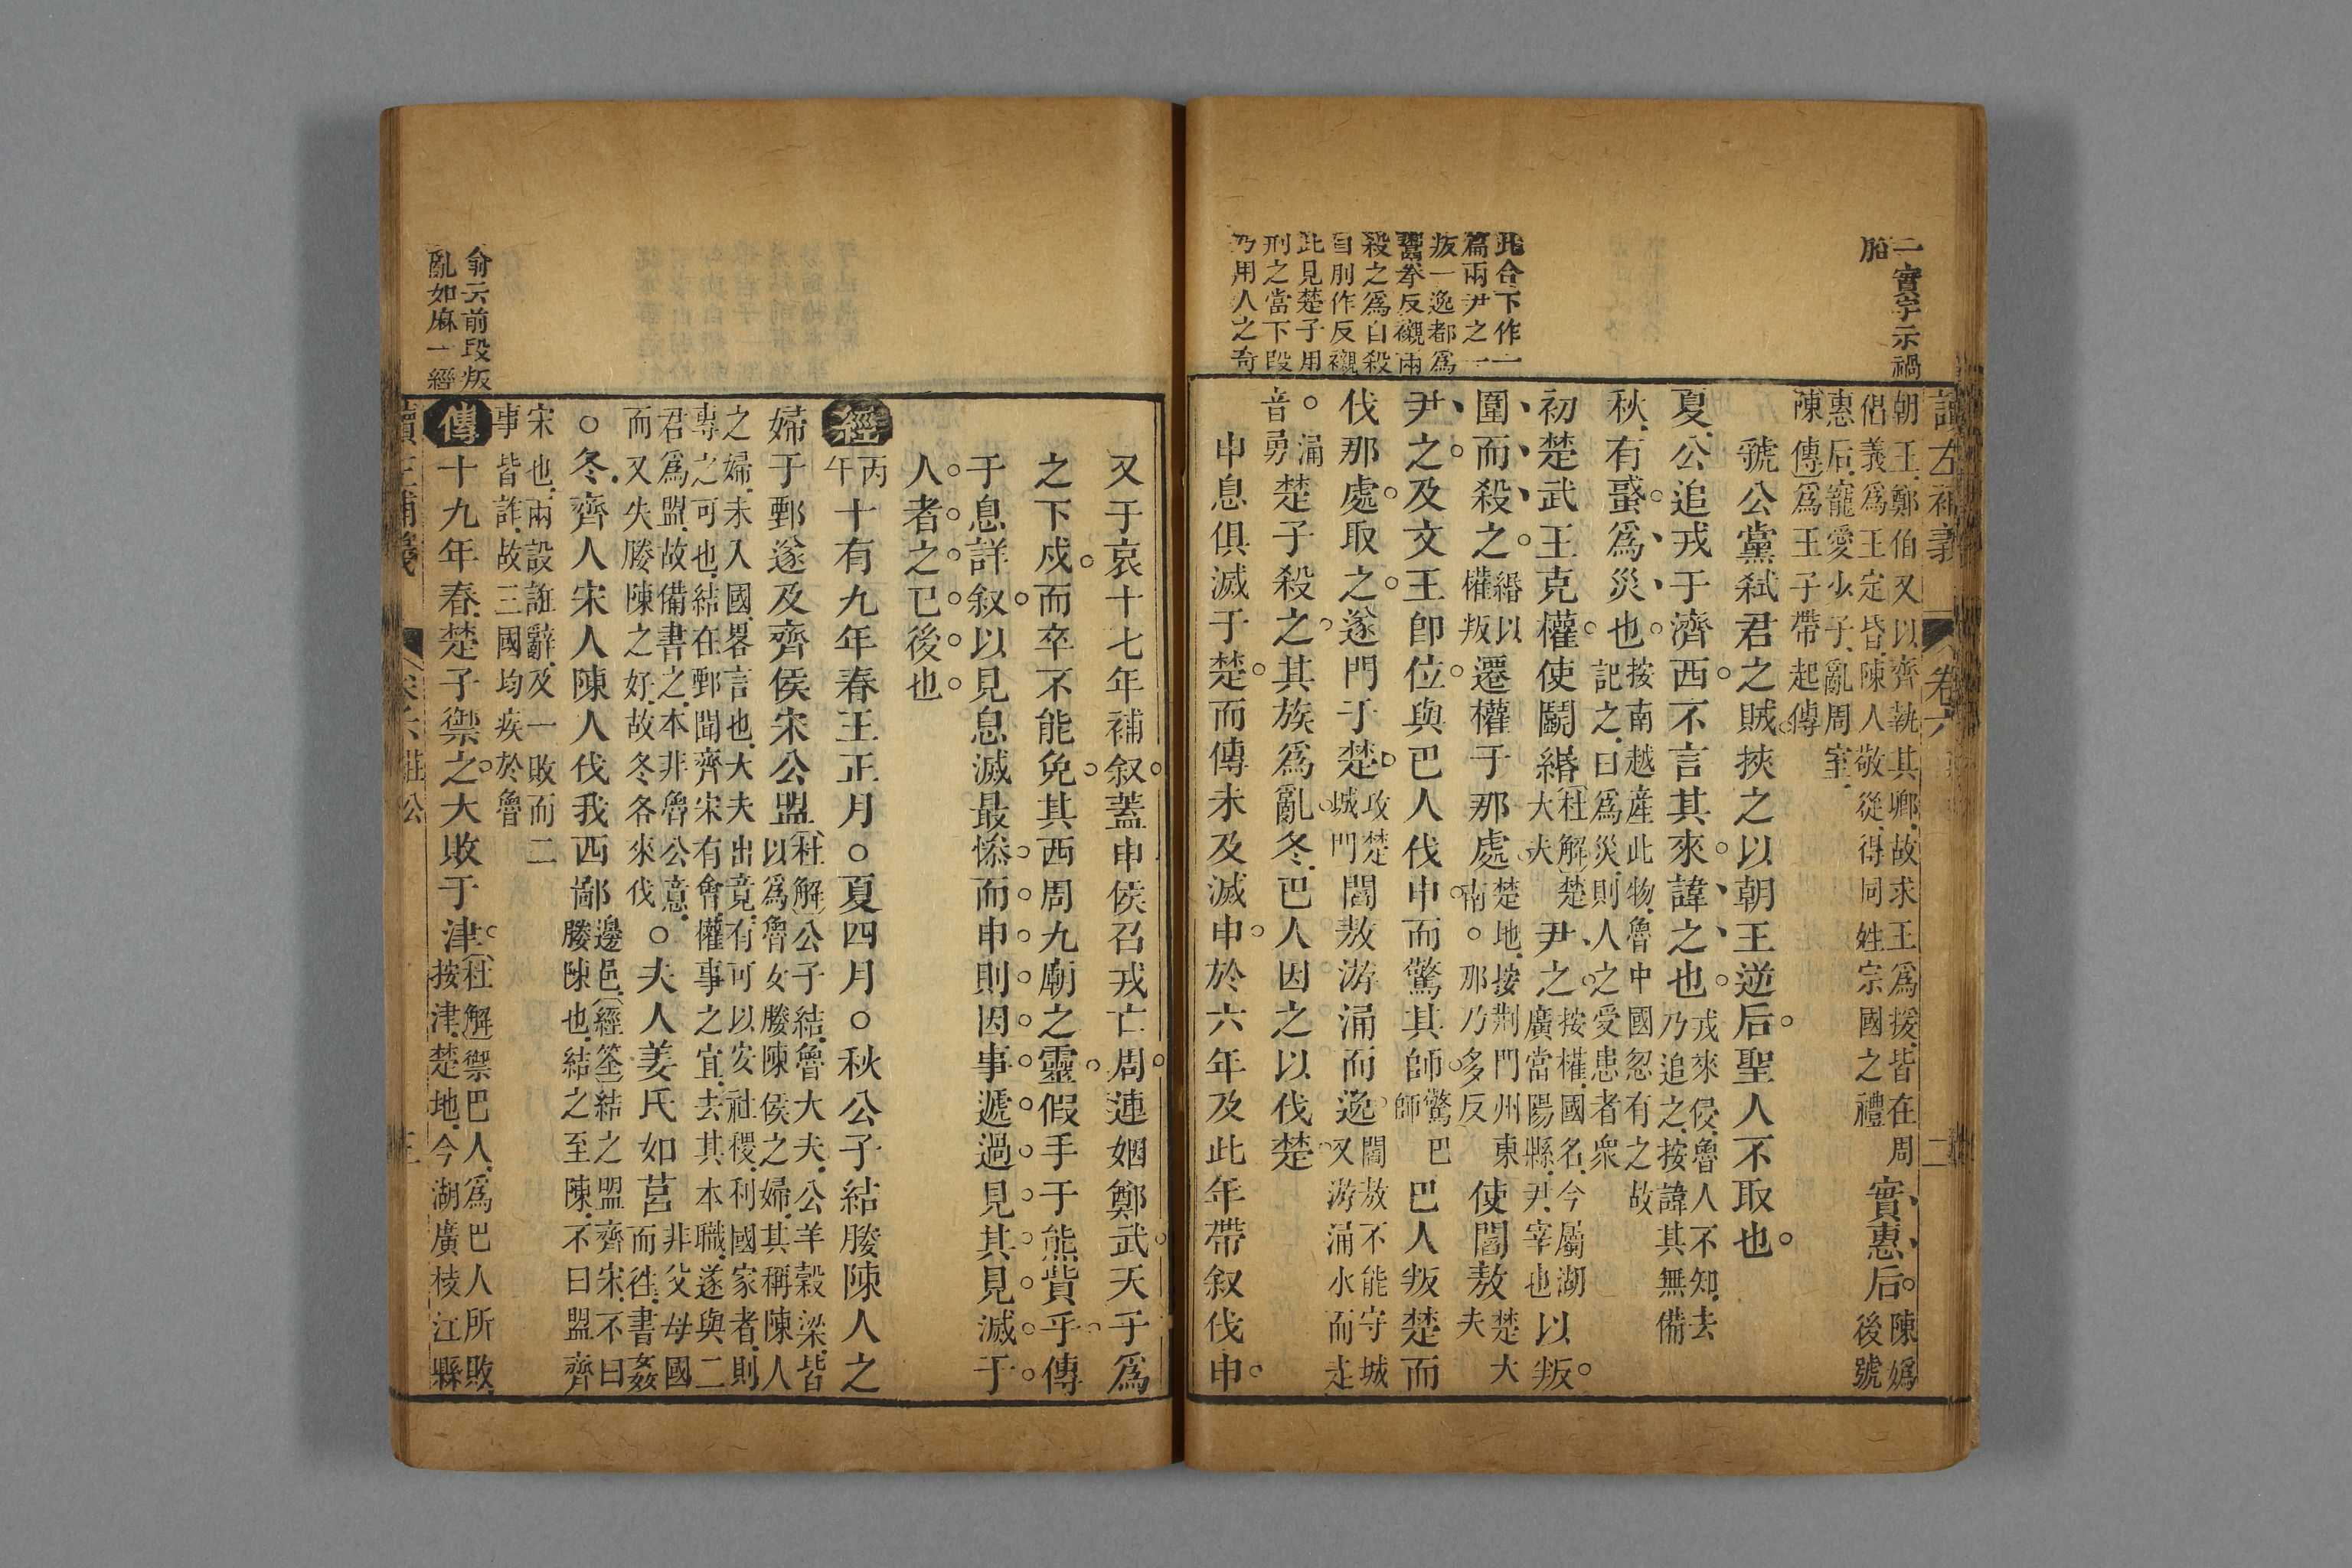 二實字示禍
胎
此合下作一
篇兩尹之一
叛一逸都爲
鬻拳反襯兩
殺之爲自殺
自刖作反襯
此見楚子用
刑之當下段
乃用人之奇
讀左補義 卷六 二
朝王鄭伯又以齊執其卿故求王爲援皆在周
倡義爲王定昏陳人敬從得同姓宗國之禮
實惠后
陳嬀
後號
惠后寵愛少子亂周室
陳傳爲王子帶起傳
虢公黨弒君之賊挾之以朝王逆后聖人不取也
夏公追戎于濟西不言其來諱之也
戎來侵魯人不知去
乃追之按諱其無備
秋有蜮爲災也
按南越產此物魯中國忽有之故
記之曰爲災則人之受患者衆
初楚武王克權使鬬緡
杜解楚
大夫
尹之
按權國名今屬湖
廣當陽縣尹宰也
以叛
圍而殺之
緡以
權叛
遷權于那處
楚地按荆門州東
南○那乃多反
使閻敖
楚大
夫
尹之及文王卽位與巴人伐申而驚其師
驚巴
師
巴人叛楚而
伐那處取之遂門于楚
攻楚
城門
閻敖游涌而逸
閻敖不能守城
又游涌水而走
○涌
音勇
楚子殺之其族爲亂冬巴人因之以伐楚
申息俱滅于楚而傳未及滅申於六年及此年帶叙伐申
又于哀十七年補叙蓋申侯召戎亡周連姻鄭武天于爲
之下戍而卒不能免其西周九廟之靈假手于熊貲乎傳
于息詳叙以見息滅最慘而申則因事遞過見其見滅于
人者之已後也
經
丙
午
十有九年春王正月○夏四月○秋公子結媵陳人之
婦于鄄遂及齊侯宋公盟
杜解公子結魯大夫公羊穀梁皆
以爲魯女媵陳侯之婦其稱陳人
之婦未入國畧言也大夫出竟有可以安社稷利國家者則
專之可也結在鄄聞齊宋有會權事之宜去其本職遂與二
君爲盟故備書之本非魯公意
而又失媵陳之好故冬各來伐
○夫人姜氏如莒
非父母國
而往書姦
○冬齊人宋人陳人伐我西鄙
邊邑經筌結之盟齊宋不曰
媵陳也結之至陳不曰盟齊
宋也兩設誑辭及一敗而二
事皆詐故三國均疾於魯
傳
十九年春楚子禦之大敗于津
杜解禦巴人爲巴人所敗
按津楚地今湖廣枝江縣
讀左補義 卷六 莊公 三
俞云前段叛
亂如麻一經